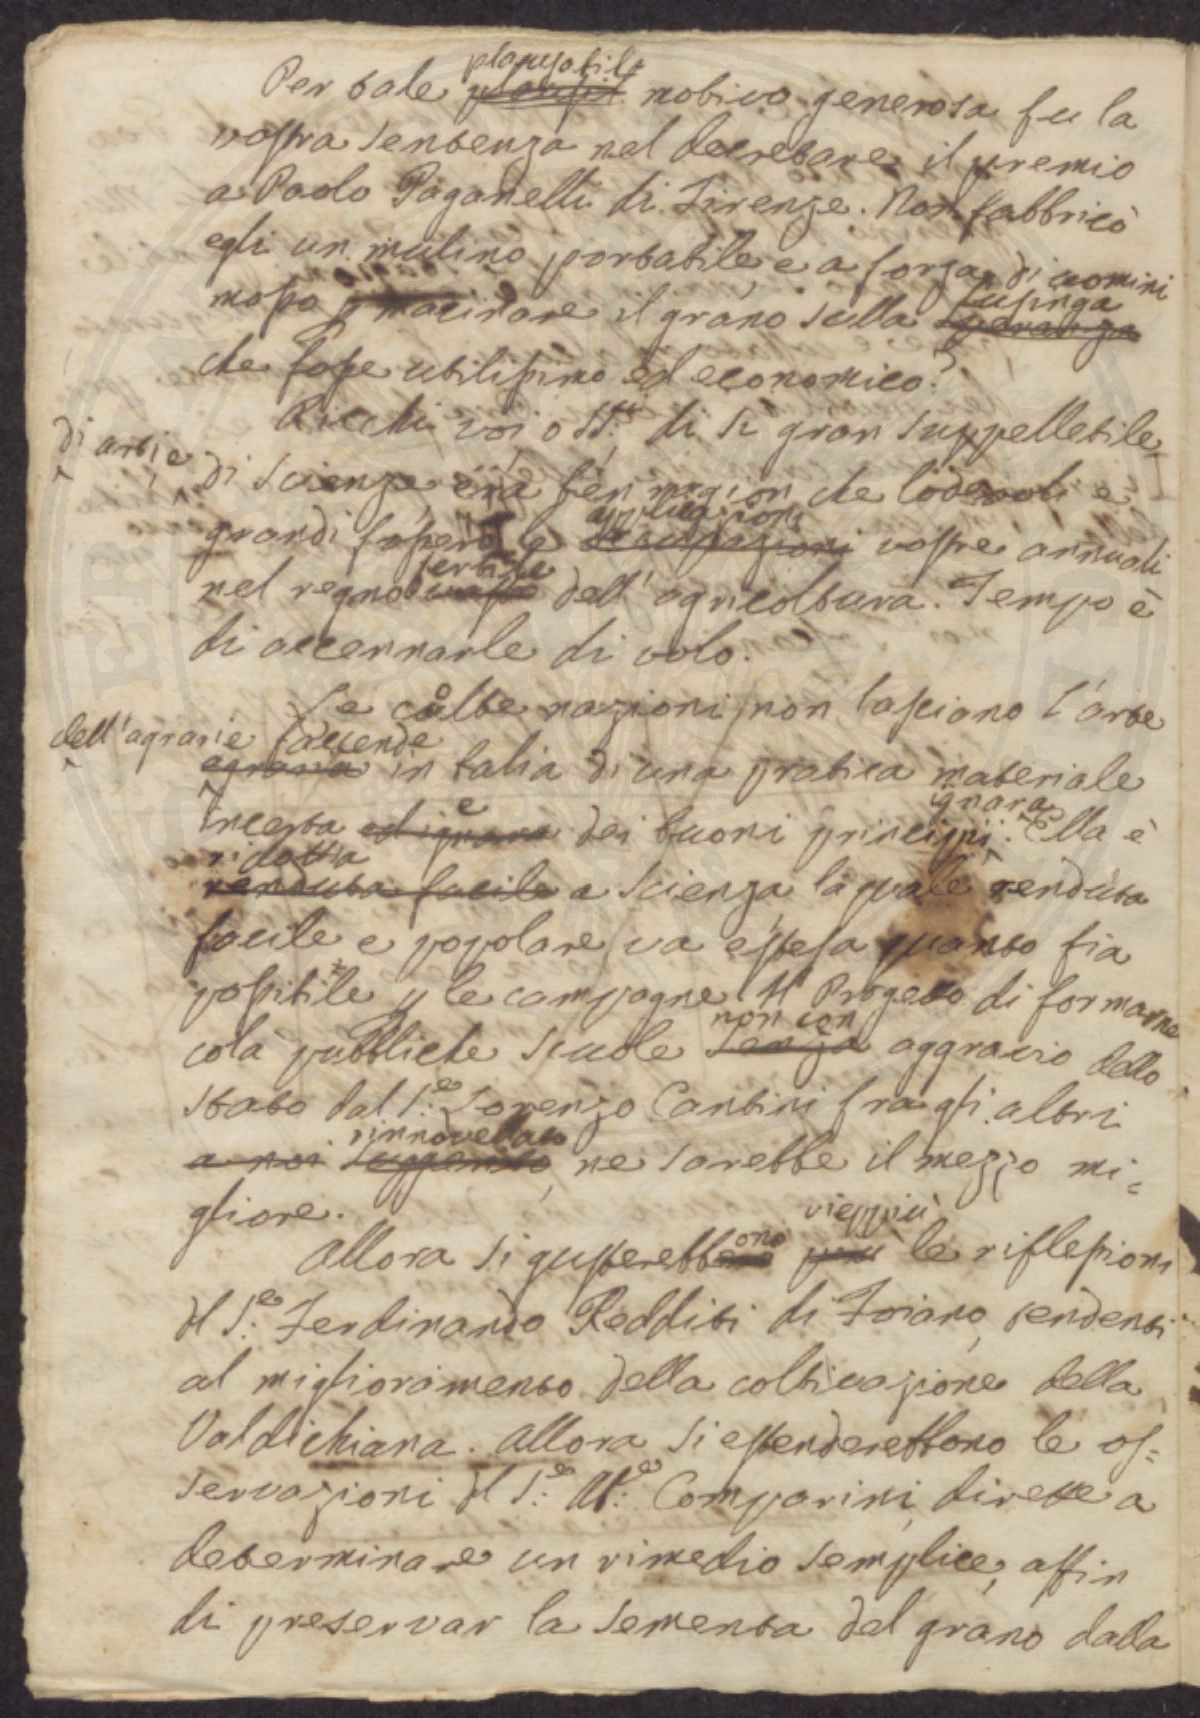 Per tale plausibile plausibil motivo generosa fu la
vostra sentenza nel decretare il premio
a Paolo Paganelli di Firenze. Non fabbricò
egli un mulino portabile e a forza di uomini
mosso p macinare il grano sulla lusinga speranza
che fosse utilissimo ed economico?
Ricchi voi o SS.ri di sì gran suppellettile
di arti, e di scienze era ben ragion che lodevoli e
grandi fossero le applicazioni occupazioni vostre annuali
nel regno fertile vasto dell'agricoltura. Tempo è
di accennarle di volo.
Le colte nazioni non lasciano l'arte
dell'agrarie faccende agraria in balia di una pratica materiale
incerta e ed ignara dei buoni principii ignara. Ella è
ridotta renduta facile a scienza la quale renduta
facile e popolare va estesa quanto fia
possibile p le campagne. Il Progetto di formarne
colà pubbliche scuole non con senza aggravio dello
stato dal S.e Lorenzo Cantini fra gli altri
rinnovellato a noi suggerito, ne sarebbe il mezzo mi=
gliore.
Allora si gusterebbono vieppiù più le riflessioni
del S.e Ferdinando Redditi di Foiano, tendenti
al miglioramento della coltivazione della
Valdichiana. Allora si estenderebbono le os=
servazioni del S.e M.e Comparini, dirette a
determinare un rimedio semplice, affin
di preservar la sementa del grano dalla